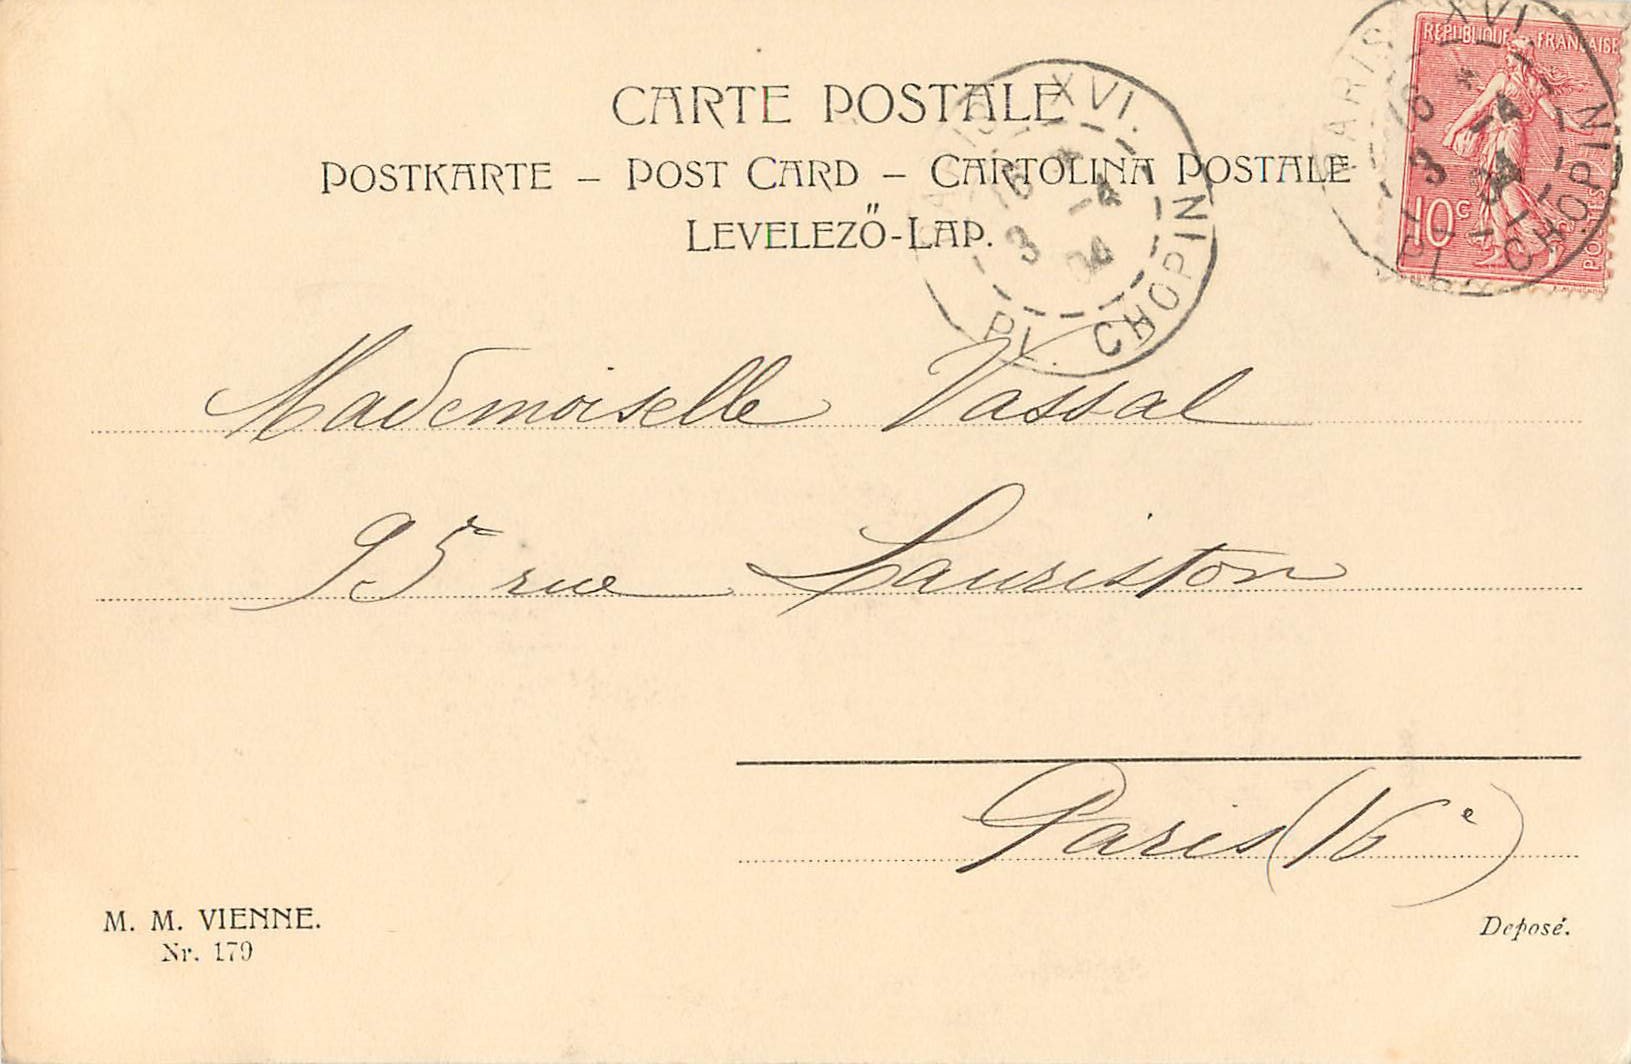 CARTE POSTALE
POSTKARTE – POST CARD – CARTOLINA POSTALE
LEVELEZŐ-LAP.
PARIS XVI.
16 * 
3 -4
04
PL. CHOPIN
REPUBLIQUE FRANÇAISE
10c
POSTES
PARIS XVI
16 *
3 -4
04
PL. CHOPIN
Mademoiselle Vassal
95 rue Lauriston
Paris (16e)
M. M. VIENNE.
Nr. 179
Deposé.